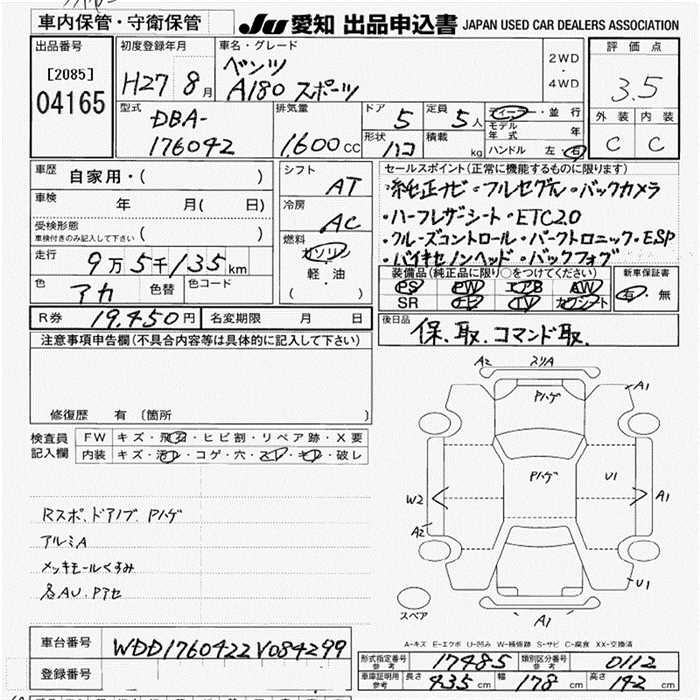 車内保管・守衛保管
JU 愛知 出品申込書 JAPAN USED CAR DEALERS ASSOCIATION
出品番号
[2085]
04165
初度登録年月
H27 8月
車名・グレード
ベンツ
A180 スポーツ
2WD
・
4WD
評価点
3.5
外装 内装
C C
型式
DBA-
176042
排気量
1,600cc
ドア 5
定員 5人
形状 ハコ
積載 kg
ディーラー・並行
モデル年式 年
ハンドル 左・右
車歴 自家用・( )
車検 年 月( 日)
受検形態
車検付きのみ記入して下さい ( )
走行 9万5千135km
色 アカ 色替 色コード
シフト AT
冷房 AC
燃料
ガソリン
軽・油
( )
セールスポイント(正常に機能するものに限ります)
・純正ナビ・フルセグTV・バックカメラ
・ハーフレザーシート・ETC2.0
・クルーズコントロール・パークトロニック・ESP
・バイキセノンヘッド・バックフォグ
装備品(純正品に限り○をつけてください)
PS PW エアB AW
SR ナビ TV カワシート
新車保証書
有・無
R券 19,450円 名変期限 月 日
後日品
保、取、コマンド取、
注意事項申告欄(不具合内容等は具体的に記入して下さい)
修復歴 有 〔箇所 〕
検査員
記入欄
FW キズ・飛石・ヒビ割・リペア跡・X要
内装 キズ・汚レ・コゲ・穴・スレ・キレ・破レ
Rスポ、ドアノブ、Pハゲ
アルミA
メッキモールくすみ
各AU、Pアセ
A2 スリA
Pハゲ
A1
Pハゲ
U1
W2
A1
A2
U1
A1
スペア
A-キズ E-エクボ U-凹み W-補修跡 S-サビ C-腐食 XX-交換済
車台番号 WDD1760422V084299
登録番号
形式指定番号 参考 17485
類別区分番号 参考 0112
車庫証明用 参考 長さ 435cm 幅 178cm 高さ 142cm